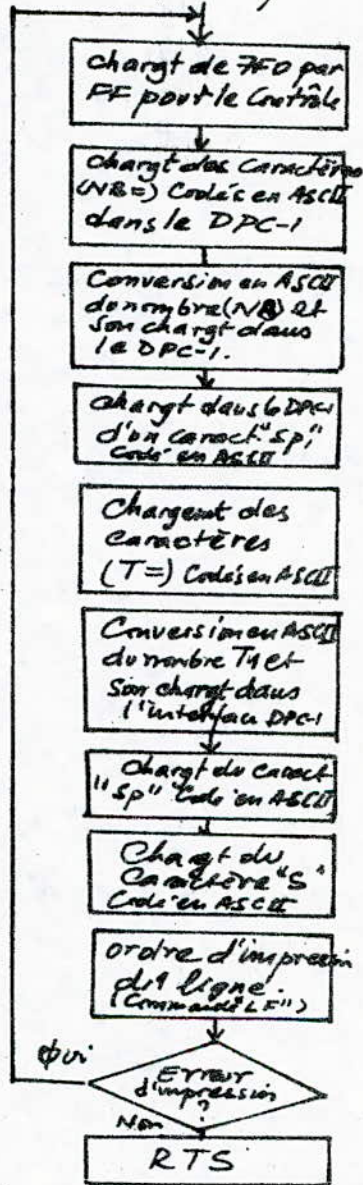 chargt de 7F0 par
FF pour le Contrôle
chargt des Caractères
(NB=) Codés en ASCII
dans le DPC-1
Conversion en ASCII
du nombre (NB) et
son chargt dans
le DPC-1.
chargt dans le DPC-1
d'un caract. "Sp"
Codé en ASCII
Chargemt des
caractères
(T=) Codés en ASCII
Conversion en ASCII
du nombre T1 et
Son chargt dans
l'interface DPC-1
chargt du caract
"Sp" Codé en ASCII
Chargt du
Caractère "S"
Codé en ASCII
ordre d'impression
d'1 ligne.
(Commande "LF")
oui
Erreur
d'impression
?
Non
RTS